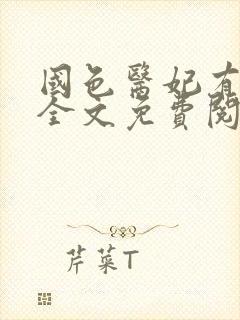 國色醫妃有
全文免費閱
芹菜T